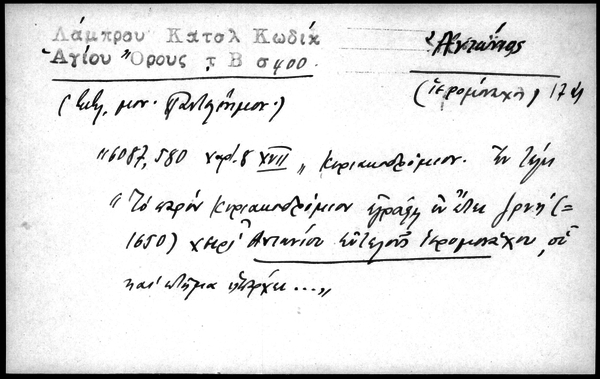 Λάμπρου Κατσλ Κωδίκ
Ἁγίου Ὄρους τ Β σ400.
Ἀντώνιος
(ἱερομόναχ)
(    μον. Παντελεήμον.)
"6087, 580 χαρ. 8 XVII „ Κυριακοδρόμιον. Ἐν τέλει
"Τὸ παρὸν Κυριακοδρόμιον ἐγράφη ἐν ἔτει    (=
1650) χειρὶ Ἀντωνίου εὐτελοῦς ἱερομονάχου, οὗ
καὶ κτῆμα ὑπάρχει ...„